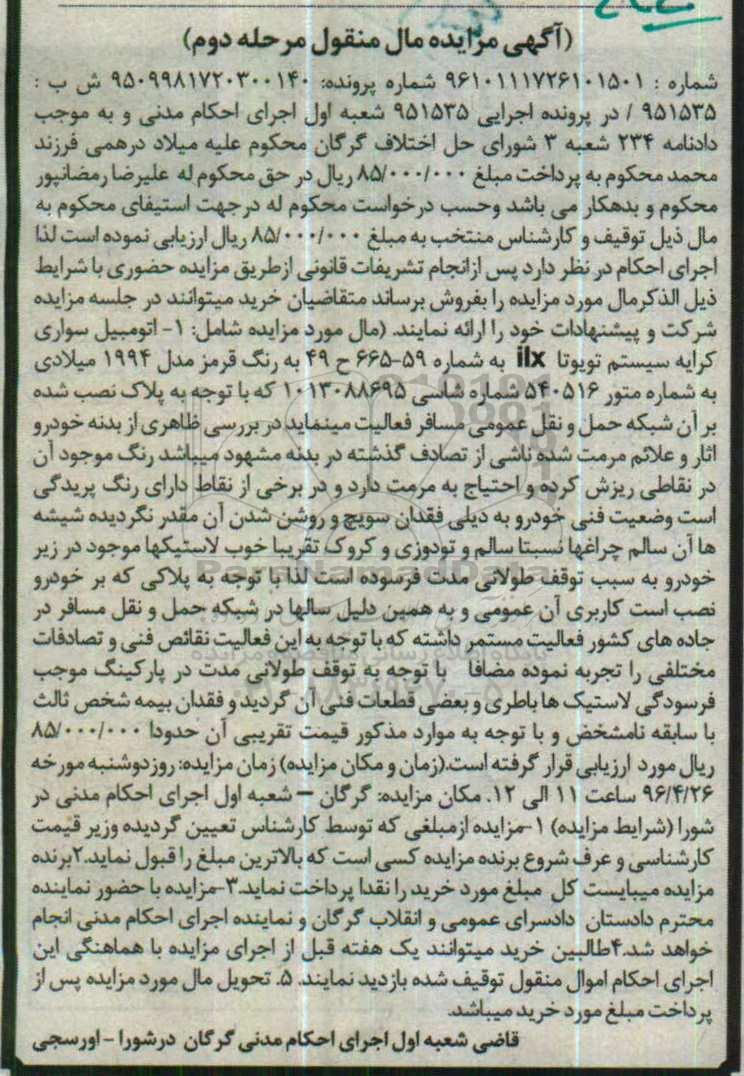 (آگهی مزایده مال منقول مرحله دوم)
شماره : ۹۶۱۰۱۱۱۷۲۶۱۰۱۵۰۱ شماره پرونده: ۹۵۰۹۹۸۱۷۲۰۳۰۰۱۴۰ ش ب :
۹۵۱۵۳۵ / در پرونده اجرایی ۹۵۱۵۳۵ شعبه اول اجرای احکام مدنی و به موجب
دادنامه ۲۳۴ شعبه ۳ شورای حل اختلاف گرگان محکوم علیه میلاد درهمی فرزند
محمد محکوم به پرداخت مبلغ ۸۵/۰۰۰/۰۰۰ ریال در حق محکوم له علیرضا رمضانپور
محکوم و بدهکار می باشد وحسب درخواست محکوم له درجهت استیفای محکوم به
مال ذیل توقیف و کارشناس منتخب به مبلغ ۸۵/۰۰۰/۰۰۰ ریال ارزیابی نموده است لذا
اجرای احکام در نظر دارد پس ازانجام تشریفات قانونی ازطریق مزایده حضوری با شرایط
ذیل الذکرمال مورد مزایده را بفروش برساند متقاضیان خرید میتوانند در جلسه مزایده
شرکت و پیشنهادات خود را ارائه نمایند. (مال مورد مزایده شامل: ۱- اتومبیل سواری
کرایه سیستم تویوتا ilx به شماره ۵۹-۶۶۵ ح ۴۹ به رنگ قرمز مدل ۱۹۹۴ میلادی
به شماره متور ۵۴۰۵۱۶ شماره شاسی ۱۰۱۳۰۸۸۶۹۵ که با توجه به پلاک نصب شده
بر آن شبکه حمل و نقل عمومی مسافر فعالیت مینماید در بررسی ظاهری از بدنه خودرو
اثار و علائم مرمت شده ناشی از تصادف گذشته در بدنه مشهود میباشد رنگ موجود آن
در نقاطی ریزش کرده و احتیاج به مرمت دارد و در برخی از نقاط دارای رنگ پریدگی
است وضعیت فنی خودرو به دیلی فقدان سویچ و روشن شدن آن مقدر نگردیده شیشه
ها آن سالم چراغها نسبتا سالم و تودوزی و کروک تقریبا خوب لاستیکها موجود در زیر
خودرو به سبب توقف طولانی مدت فرسوده است لذا با توجه به پلاکی که بر خودرو
نصب است کاربری آن عمومی و به همین دلیل سالها در شبکه حمل و نقل مسافر در
جاده های کشور فعالیت مستمر داشته که با توجه به این فعالیت نقائص فنی و تصادفات
مختلفی را تجربه نموده مضافا با توجه به توقف طولانی مدت در پارکینگ موجب
فرسودگی لاستیک ها باطری و بعضی قطعات فنی آن گردید و فقدان بیمه شخص ثالث
با سابقه نامشخص و با توجه به موارد مذکور قیمت تقریبی آن حدودا ۸۵/۰۰۰/۰۰۰
ریال مورد ارزیابی قرار گرفته است.(زمان و مکان مزایده) زمان مزایده: روز دوشنبه مورخه
۹۶/۴/۲۶ ساعت ۱۱ الی ۱۲. مکان مزایده: گرگان – شعبه اول اجرای احکام مدنی در
شورا (شرایط مزایده) ۱-مزایده ازمبلغی که توسط کارشناس تعیین گردیده وزیر قیمت
کارشناسی و عرف شروع برنده مزایده کسی است که بالاترین مبلغ را قبول نماید.۲برنده
مزایده میبایست کل مبلغ مورد خرید را نقدا پرداخت نماید.۳-مزایده با حضور نماینده
محترم دادستان دادسرای عمومی و انقلاب گرگان و نماینده اجرای احکام مدنی انجام
خواهد شد.۴طالبین خرید میتوانند یک هفته قبل از اجرای مزایده با هماهنگی این
اجرای احکام اموال منقول توقیف شده بازدید نمایند. ۵. تحویل مال مورد مزایده پس از
پرداخت مبلغ مورد خرید میباشد.
قاضی شعبه اول اجرای احکام مدنی گرگان درشورا - اورسجی
ParsNamadData